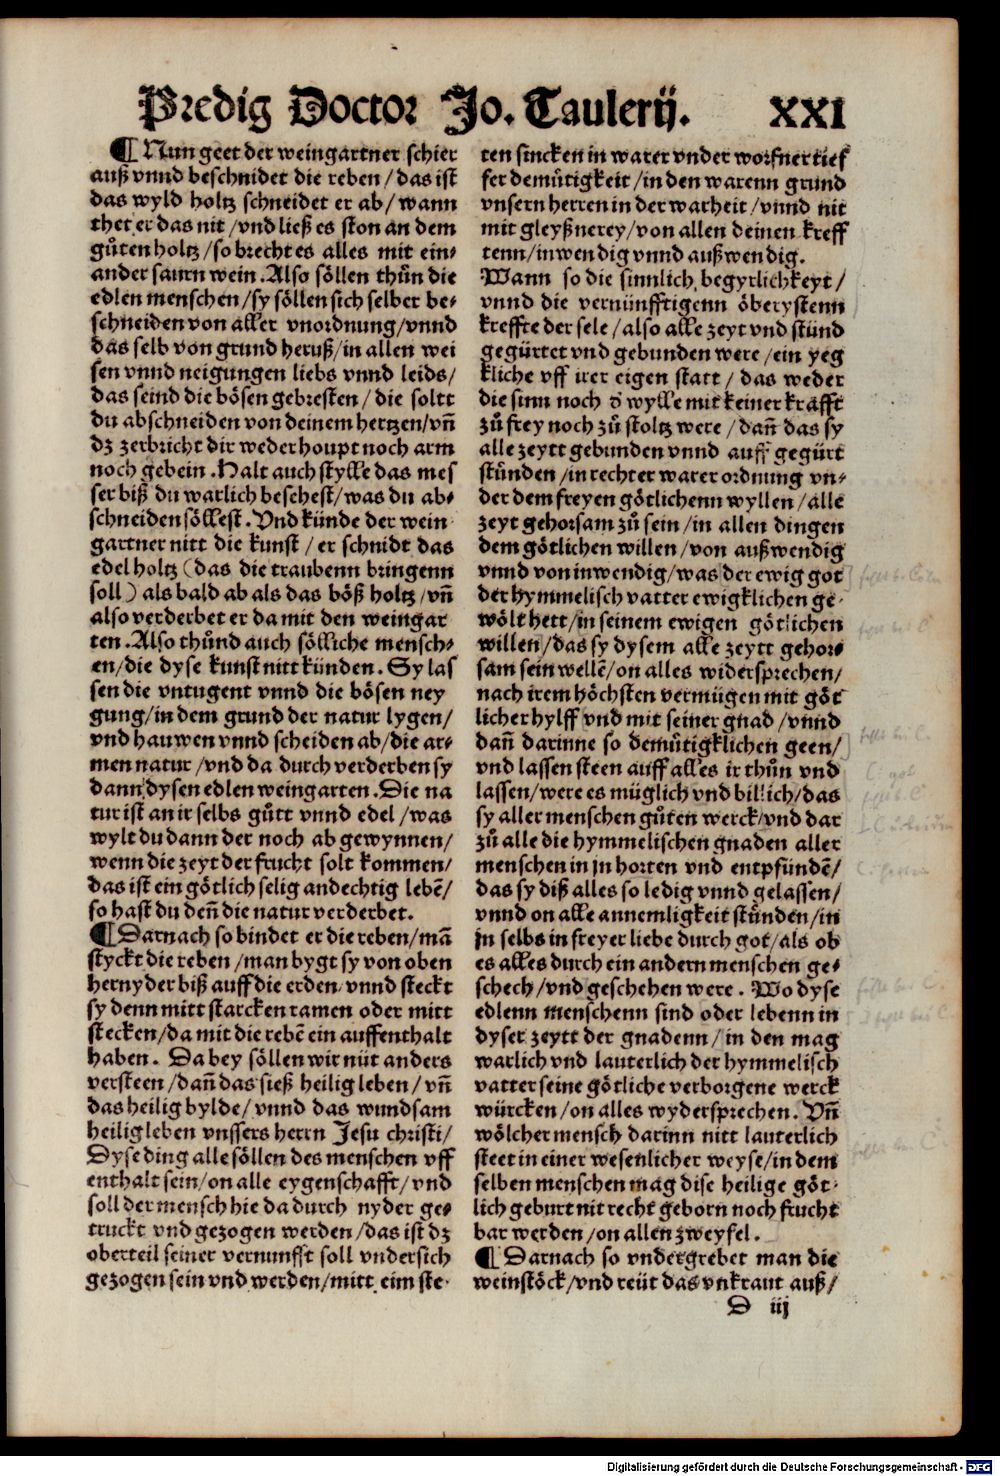 Predig Doctor Jo. Taulerij. XXI
¶ Nun geet der weingartner schier
auß vnnd beschnidet die reben / das ist
das wyld holtz schneidet er ab / wann
thet er das nit / vnd ließ es ston an dem
gůten holtz / so brecht es alles mit ein⸗
ander saurn wein. Also söllen thůn die
edlen menschen / sy söllen sich selber be⸗
schneiden von aller vnordnung / vnnd
das selb von grund heruß / in allen wei
sen vnnd neigungen liebs vnnd leids /
das seind die bösen gebresten / die soltt
du abschneiden von deinem hertzen / vn̄
dz zerbricht dir weder houpt noch arm
noch gebein. Halt auch stylle das mes
ser biß du warlich beschest / was du ab⸗
schneiden söllest. Vnd künde der wein
gartner nitt die kunst / er schnidt das
edel holtz (das die traubenn bringenn
soll) als bald ab als das böß holtz / vn̄
also verderbet er da mit den weingar
ten. Also thůnd auch sölliche mensch⸗
en / die dyse kunst nitt künden. Sy las
sen die vntugent vnnd die bösen ney
gung / in dem grund der natur lygen /
vnd hauwen vnnd scheiden ab / die ar⸗
men natur / vnd da durch verderben sy
dann dysen edlen weingarten. Die na
tur ist an ir selbs gůtt vnnd edel / was
wylt du dann der noch ab gewynnen /
wenn die zeyt der frucht solt kommen /
das ist ein götlich selig andechtig lebē /
so hast du den̄ die natur verderbet.
¶ Darnach so bindet er die reben / mā
styckt die reben / man bygt sy von oben
hernyder biß auff die erden / vnnd steckt
sy denn mitt starcken ramen oder mitt
stecken / da mit die rebē ein auffenthalt
haben. Da bey söllen wir nüt anders
versteen / dan̄ das sieß heilig leben / vn̄
das heilig bylde / vnnd das wundsam
heilig leben vnssers herrn Jesu christi /
Dyse ding alle söllen des menschen vff
enthalt sein / on alle eygenschafft / vnd
soll der mensch hie da durch nyder ge⸗
truckt vnd gezogen werden / das ist dz
oberteil seiner vernunfft soll vndersich
gezogen sein vnd werden / mitt eim ste⸗
ten sincken in warer vnder worfner tief
fer demůtigkeit / in den warenn grund
vnsern herren in der warheit / vnnd nit
mit gleyßnerey / von allen deinen kreff
tenn / inwendig vnnd außwendig.
Wann so die sinnlich begyrlichkeyt /
vnnd die vernünfftigenn öberystenn
kreffte der sele / also alle zeyt vnd stünd
gegürtet vnd gebunden were / ein yeg
kliche vff irer eigen statt / das weder
die sinn noch d̄ wylle mit keiner kräfft
zů frey noch zů stoltz were / dan̄ das sy
alle zeytt gebunden vnnd auff gegürt
stünden / in rechter warer ordnung vn⸗
der dem freyen götlichenn wyllen / alle
zeyt gehorsam zů sein / in allen dingen
dem götlichen willen / von außwendig
vnnd von inwendig / was der ewig got
der hymmelisch vatter ewigklichen ge⸗
wölt hett / in seinem ewigen götlichen
willen / das sy dysem alle zeytt gehor⸗
sam sein wellē / on alles widersprechen /
nach irem höchsten vermügen mit göt
licher hylff vnd mit seiner gnad / vnnd
dan̄ darinne so demůtigklichen geen /
vnd lassen steen auff alles ir thůn vnd
lassen / were es müglich vnd billich / das
sy aller menschen gůten werck / vnd dar
zů alle die hymmelischen gnaden aller
menschen in jn horten vnd entpfündē /
das sy diß alles so ledig vnnd gelassen /
vnnd on alle annemligkeit stünden / in
jn selbs in freyer liebe durch got / als ob
es alles durch ein andern menschen ge⸗
schech / vnd geschehen were. Wo dyse
edlenn menschenn sind oder lebenn in
dyser zeytt der gnadenn / in den mag
warlich vnd lauterlich der hymmelisch
vatter seine götliche verborgene werck
würcken / on alles wydersprechen. Vn̄
wölcher mensch darinn nitt lauterlich
steet in einer wesenlicher weyse / in dem
selben menschen mag dise heilige göt⸗
lich geburt nit recht geborn noch frucht
bar werden / on allen zweyfel.
¶ Darnach so vndergrebet man die
weinstöck / vnd reüt das vnkraut auß /
D iij
Digitalisierung gefördert durch die Deutsche Forschungsgemeinschaft - DFG